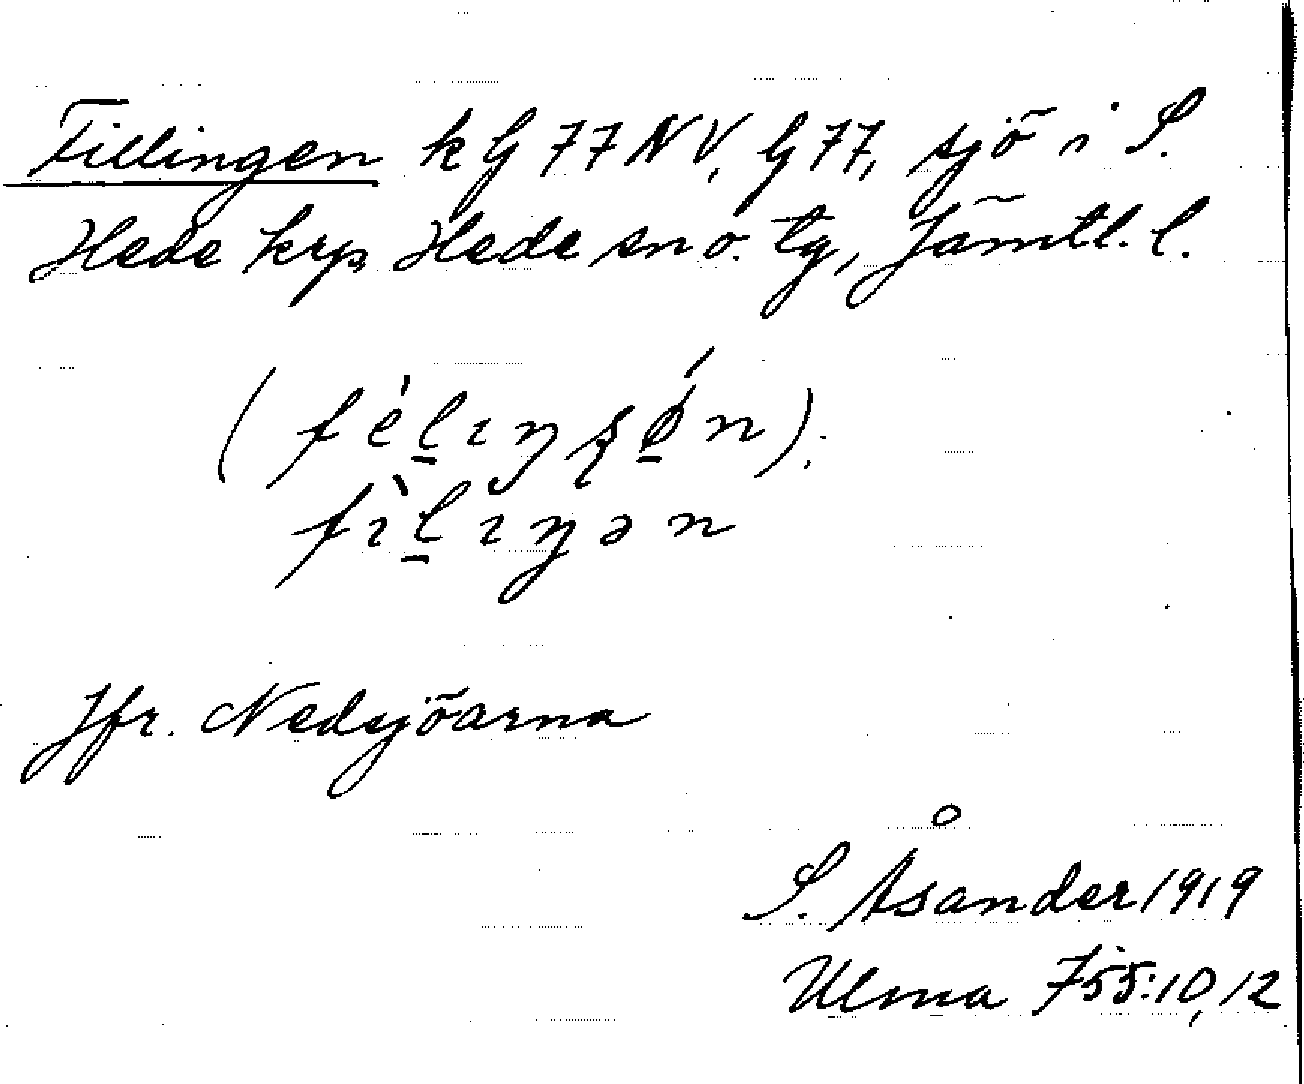 Fillingen k G 77 NV, G 77, sjö i S.
Hede krp, Hede sn o. tg, Jämtl. l.
Jfr. Nedsjöarna
S. Åsander 1919
Ulma 755:10, 12